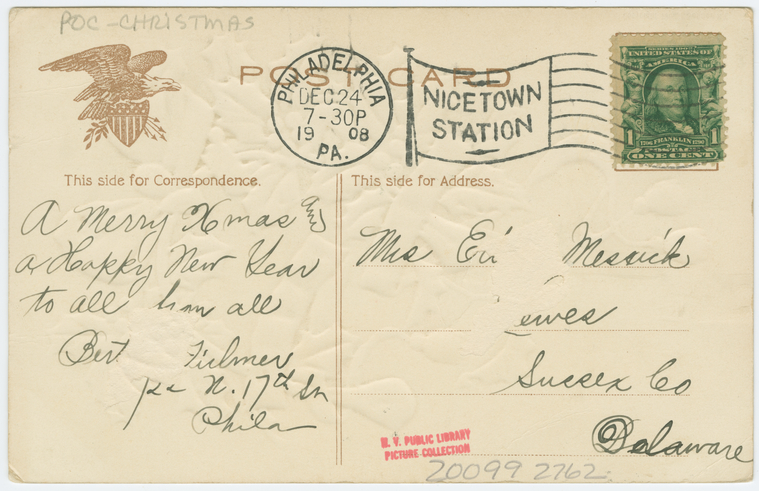 POC-CHRISTMAS
POST CARD
PHILADELPHIA
DEC 24
7-30P
19 08
PA.
NICETOWN
STATION
SERIES 1902
UNITED STATES OF
AMERICA
1 FRANKLIN 1
POSTAGE
ONE CENT
This side for Correspondence.
A Merry Xmas and
a Happy New Year
to all from all
Bert
N. 17th
Phila
This side for Address.
Mrs Messick
Sussex Co
Delaware
N. Y. PUBLIC LIBRARY
PICTURE COLLECTION
20099 2762